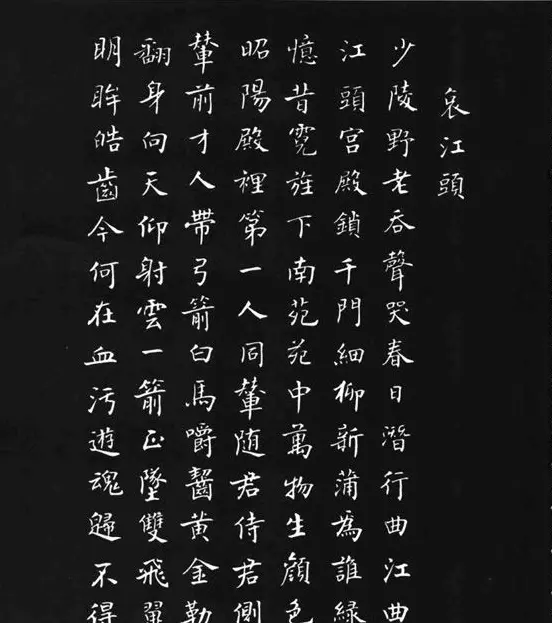 哀江頭
少陵野老吞聲哭春日潛行曲江曲
江頭宮殿鎖千門細柳新蒲為誰綠
憶昔霓旌下南苑苑中萬物生顏色
昭陽殿裡第一人同輦随君侍君側
輦前才人帶弓箭白馬嚼齧黃金勒
翻身向天仰射雲一箭正墜雙飛翼
明眸皓齒今何在血污遊魂歸不得